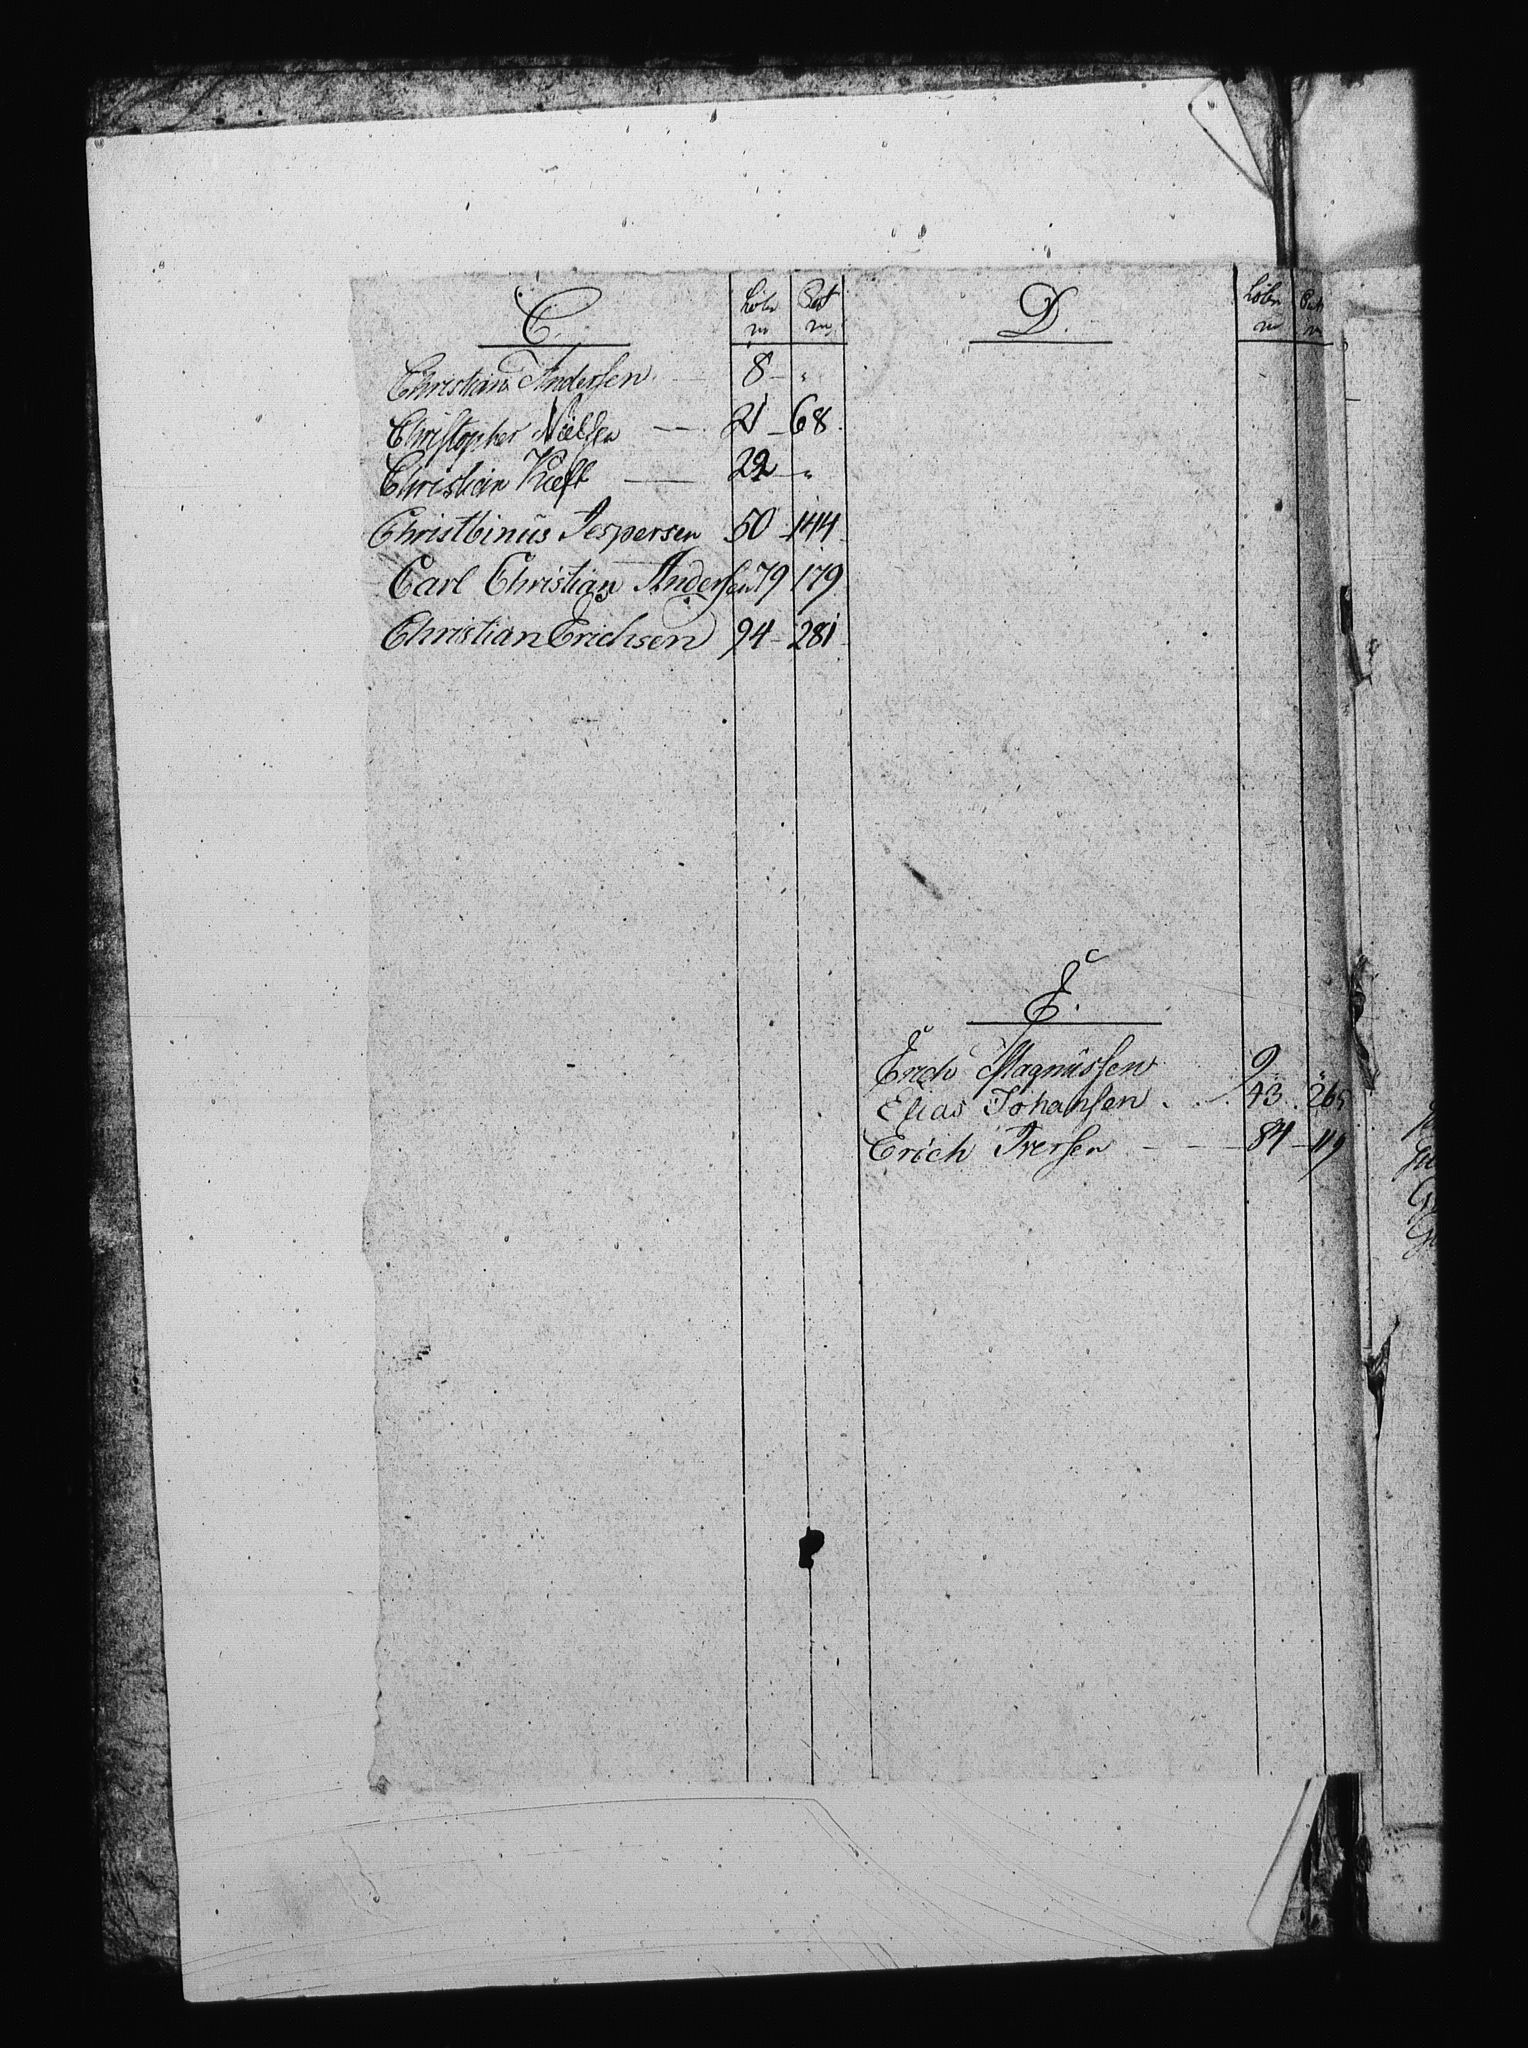 C.
Löbn Pat
n n
Christian Andersen — 8 – "
Christopher Nielsen — 21 – 68.
Christian — 22 – "
Christbinüs Jespersen 50 – 144
Carl Christian Andersen 79 179
Christian Erichsen 94 – 281
D.
Löbn Pat
n n
E.
Erich Magnüssen 9 "
Elias Johansen . . 43 . 265
Erich Iversen — — 84 – 119